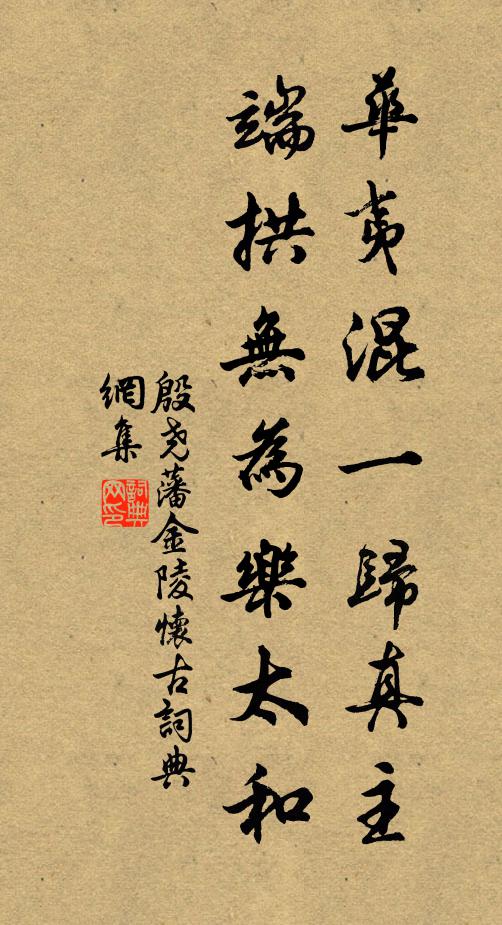 華夷混一歸真主
端拱無為樂太和
殷尧藩金陵懷古詞典
網集
詞典
网印